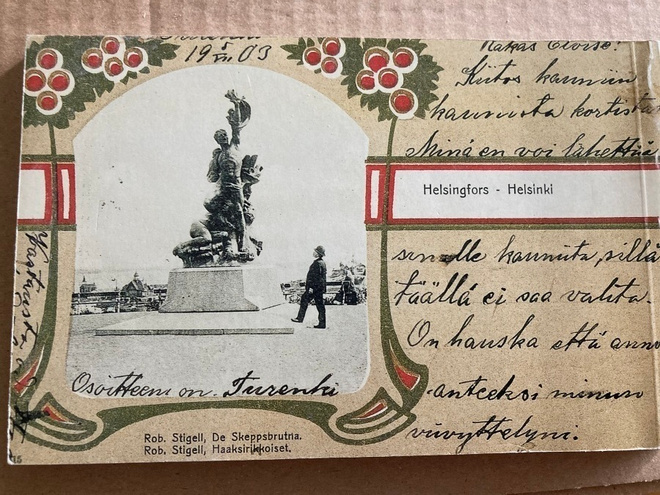 19 5/VII 03
Rakas Eloise!
Kiitos kauniin
kauniista kortista
Minä en voi lähettää
Helsingfors - Helsinki
sinulle kauniita, sillä
täällä ei saa valita.
On hauska että anno
anteeksi minun
viivyttelyni.
Osoitteeni on. Turenki
Rob. Stigell, De Skeppsbrutna.
Rob. Stigell, Haaksirikkoiset.
15